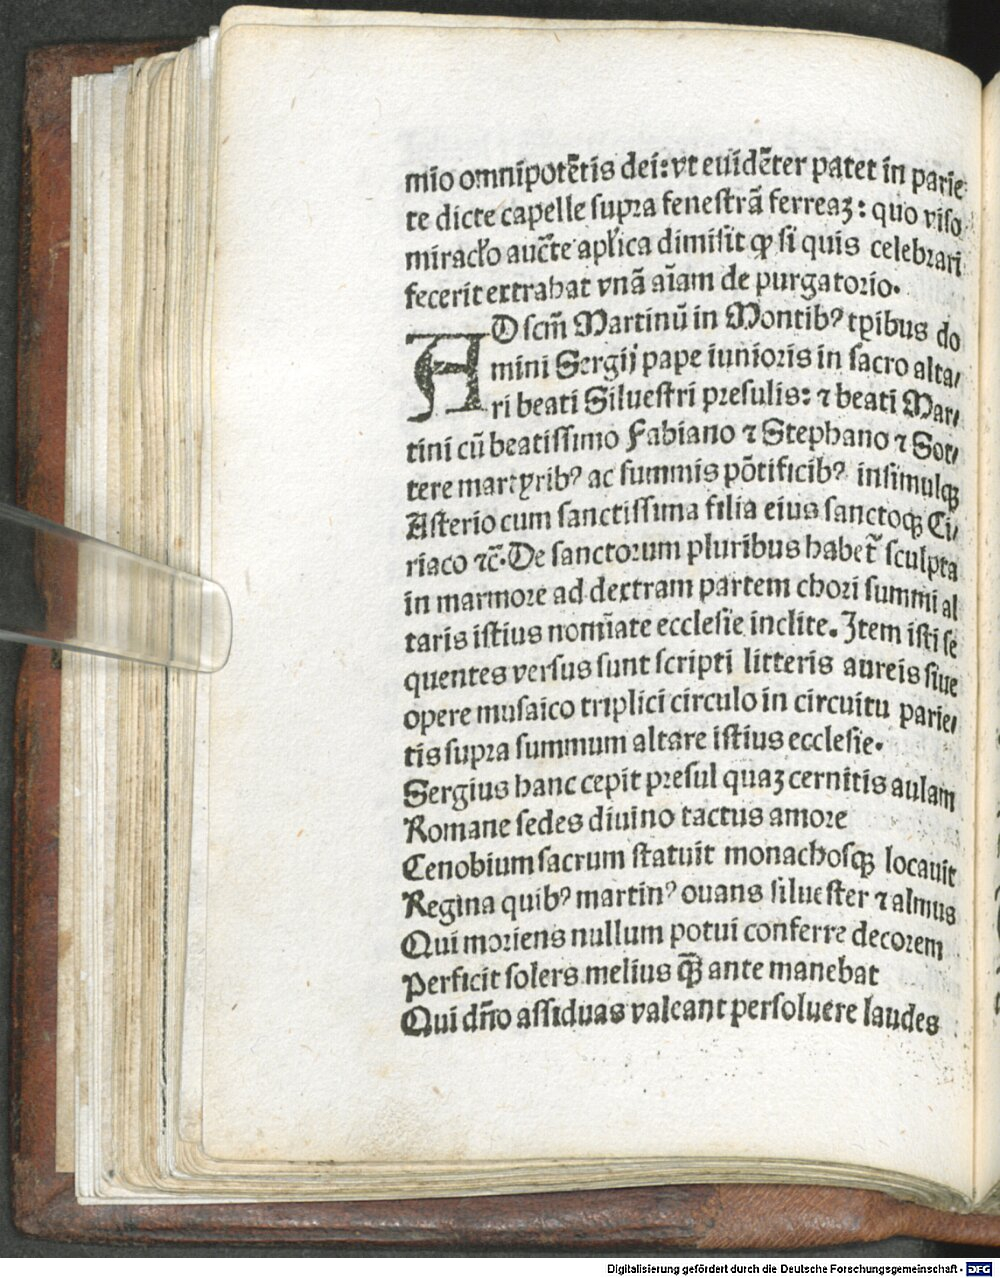 mio omnipotētis dei: vt euidēter patet in parie
te dicte capelle supra fenestrā ferreaꝫ: quo viso
miracło auc̄te apłica dimisit ꝙ si quis celebrari
fecerit extrahat vnā aīam de purgatorio.
AD scm̄ Martinū in Montibꝰ tpibus do
mini Sergij pape iunioris in sacro alta/
ri beati Siluestri presulis: ⁊ beati Mar/
tini cū beatissimo Fabiano ⁊ Stephano ⁊ Sot/
tere martyribꝰ ac summis pōtificibꝰ insimulqꝫ
Asterio cum sanctissima filia eius sanctoqꝫ Ci/
riaco ⁊c̄. De sanctorum pluribus habet̄ sculpta
in marmore ad dextram partem chori summi al
taris istius nomīate ecclesie inclite. Item isti se
quentes versus sunt scripti litteris aureis siue
opere musaico triplici circulo in circuitu parie/
tis supra summum altare istius ecclesie.
Sergius hanc cepit presul quaꝫ cernitis aulam
Romane sedes diuino tactus amore
Cenobium sacrum statuit monachosqꝫ locauit
Regina quibꝰ martinꝰ ouans siluester ⁊ almus
Qui moriens nullum potui conferre decorem
Perficit solers melius qꝫ̄ ante manebat
Qui dn̄o assiduas valeant persoluere laudes
Digitalisierung gefördert durch die Deutsche Forschungsgemeinschaft - DFG